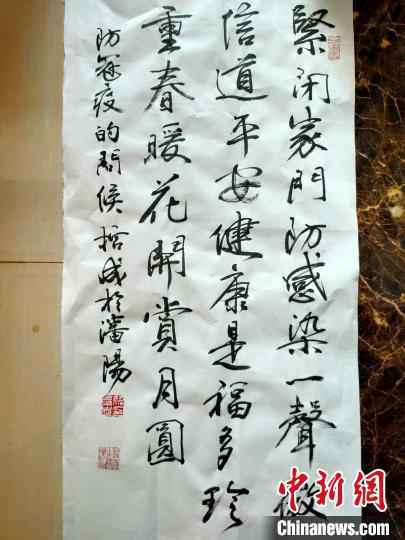 緊閉家門防感染一聲微
信道平安健康是福多珍
重春暖花開賞月圓
防冠疫的問候 成於瀋陽
中新網
Chinanews.com